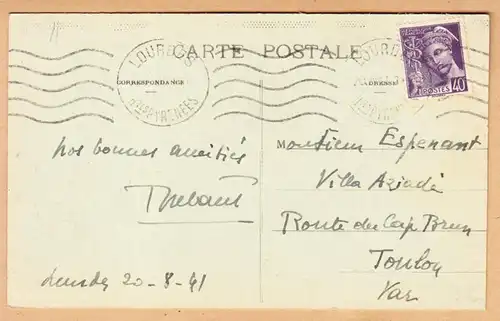 CARTE POSTALE
LOURDES
Htes PYRENEES
LOURDES
POSTES 40
CORRESPONDANCE
ADRESSE
Nos bonnes amitiés
Lourdes 20-8-41
Monsieur Espenant
Villa Aziadé
Route du Cap Brun
Toulon
Var